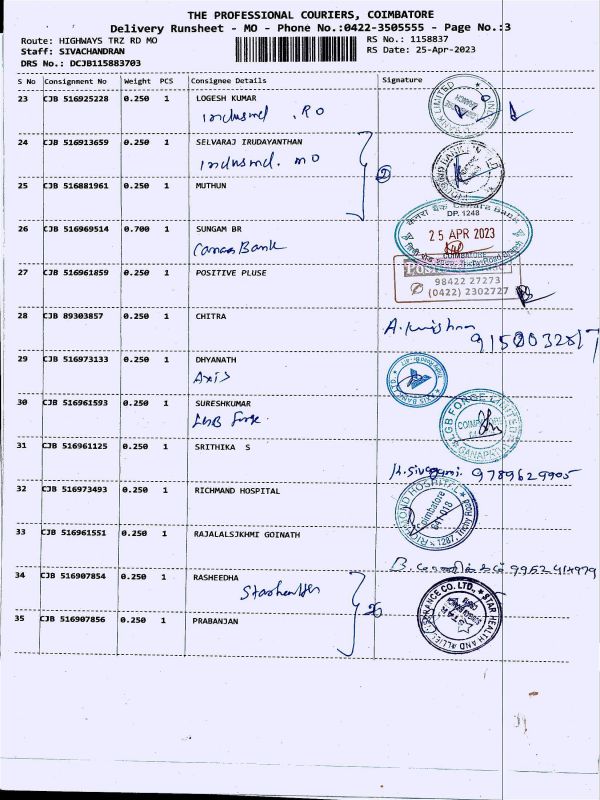 THE PROFESSIONAL COURIERS, COIMBATORE
Delivery Runsheet - MO - Phone No.:0422-3505555 - Page No.:3
Route: HIGHWAYS TRZ RD MO
RS No.: 1158837
Staff: SIVACHANDRAN
RS Date: 25-Apr-2023
DRS No.: DCJB115883703
S No Consignment No Weight PCS Consignee Details Signature
23 CJB 516925228 0.250 1 LOGESH KUMAR
Indusind. RO
24 CJB 516913659 0.250 1 SELVARAJ IRUDAYANTHAN
Indusind. MO
2
25 CJB 516881961 0.250 1 MUTHUN
DP. 1248
26 CJB 516969514 0.700 1 SUNGAM BR
Canara Bank
केनरा बैंक Canara Bank
25 APR 2023
COIMBATORE
27 CJB 516961859 0.250 1 POSITIVE PLUSE
98422 27273
(0422) 2302727
28 CJB 89303857 0.250 1 CHITRA
29 CJB 516973133 0.250 1 DHYANATH
Axis
30 CJB 516961593 0.250 1 SURESHKUMAR
LGB Forge
LGB FORGE LIMITED
GANAPATHY
31 CJB 516961125 0.250 1 SRITHIKA S
K. Sivagami 9789629905
32 CJB 516973493 0.250 1 RICHMAND HOSPITAL
RICHMOND HOSPITAL
Coimbatore
641 018
33 CJB 516961551 0.250 1 RAJALALSJKHMI GOINATH
34 CJB 516907854 0.250 1 RASHEEDHA
Starhealth
STAR HEALTH AND ALLIED INSURANCE CO. LTD.,
35 CJB 516907856 0.250 1 PRABANJAN